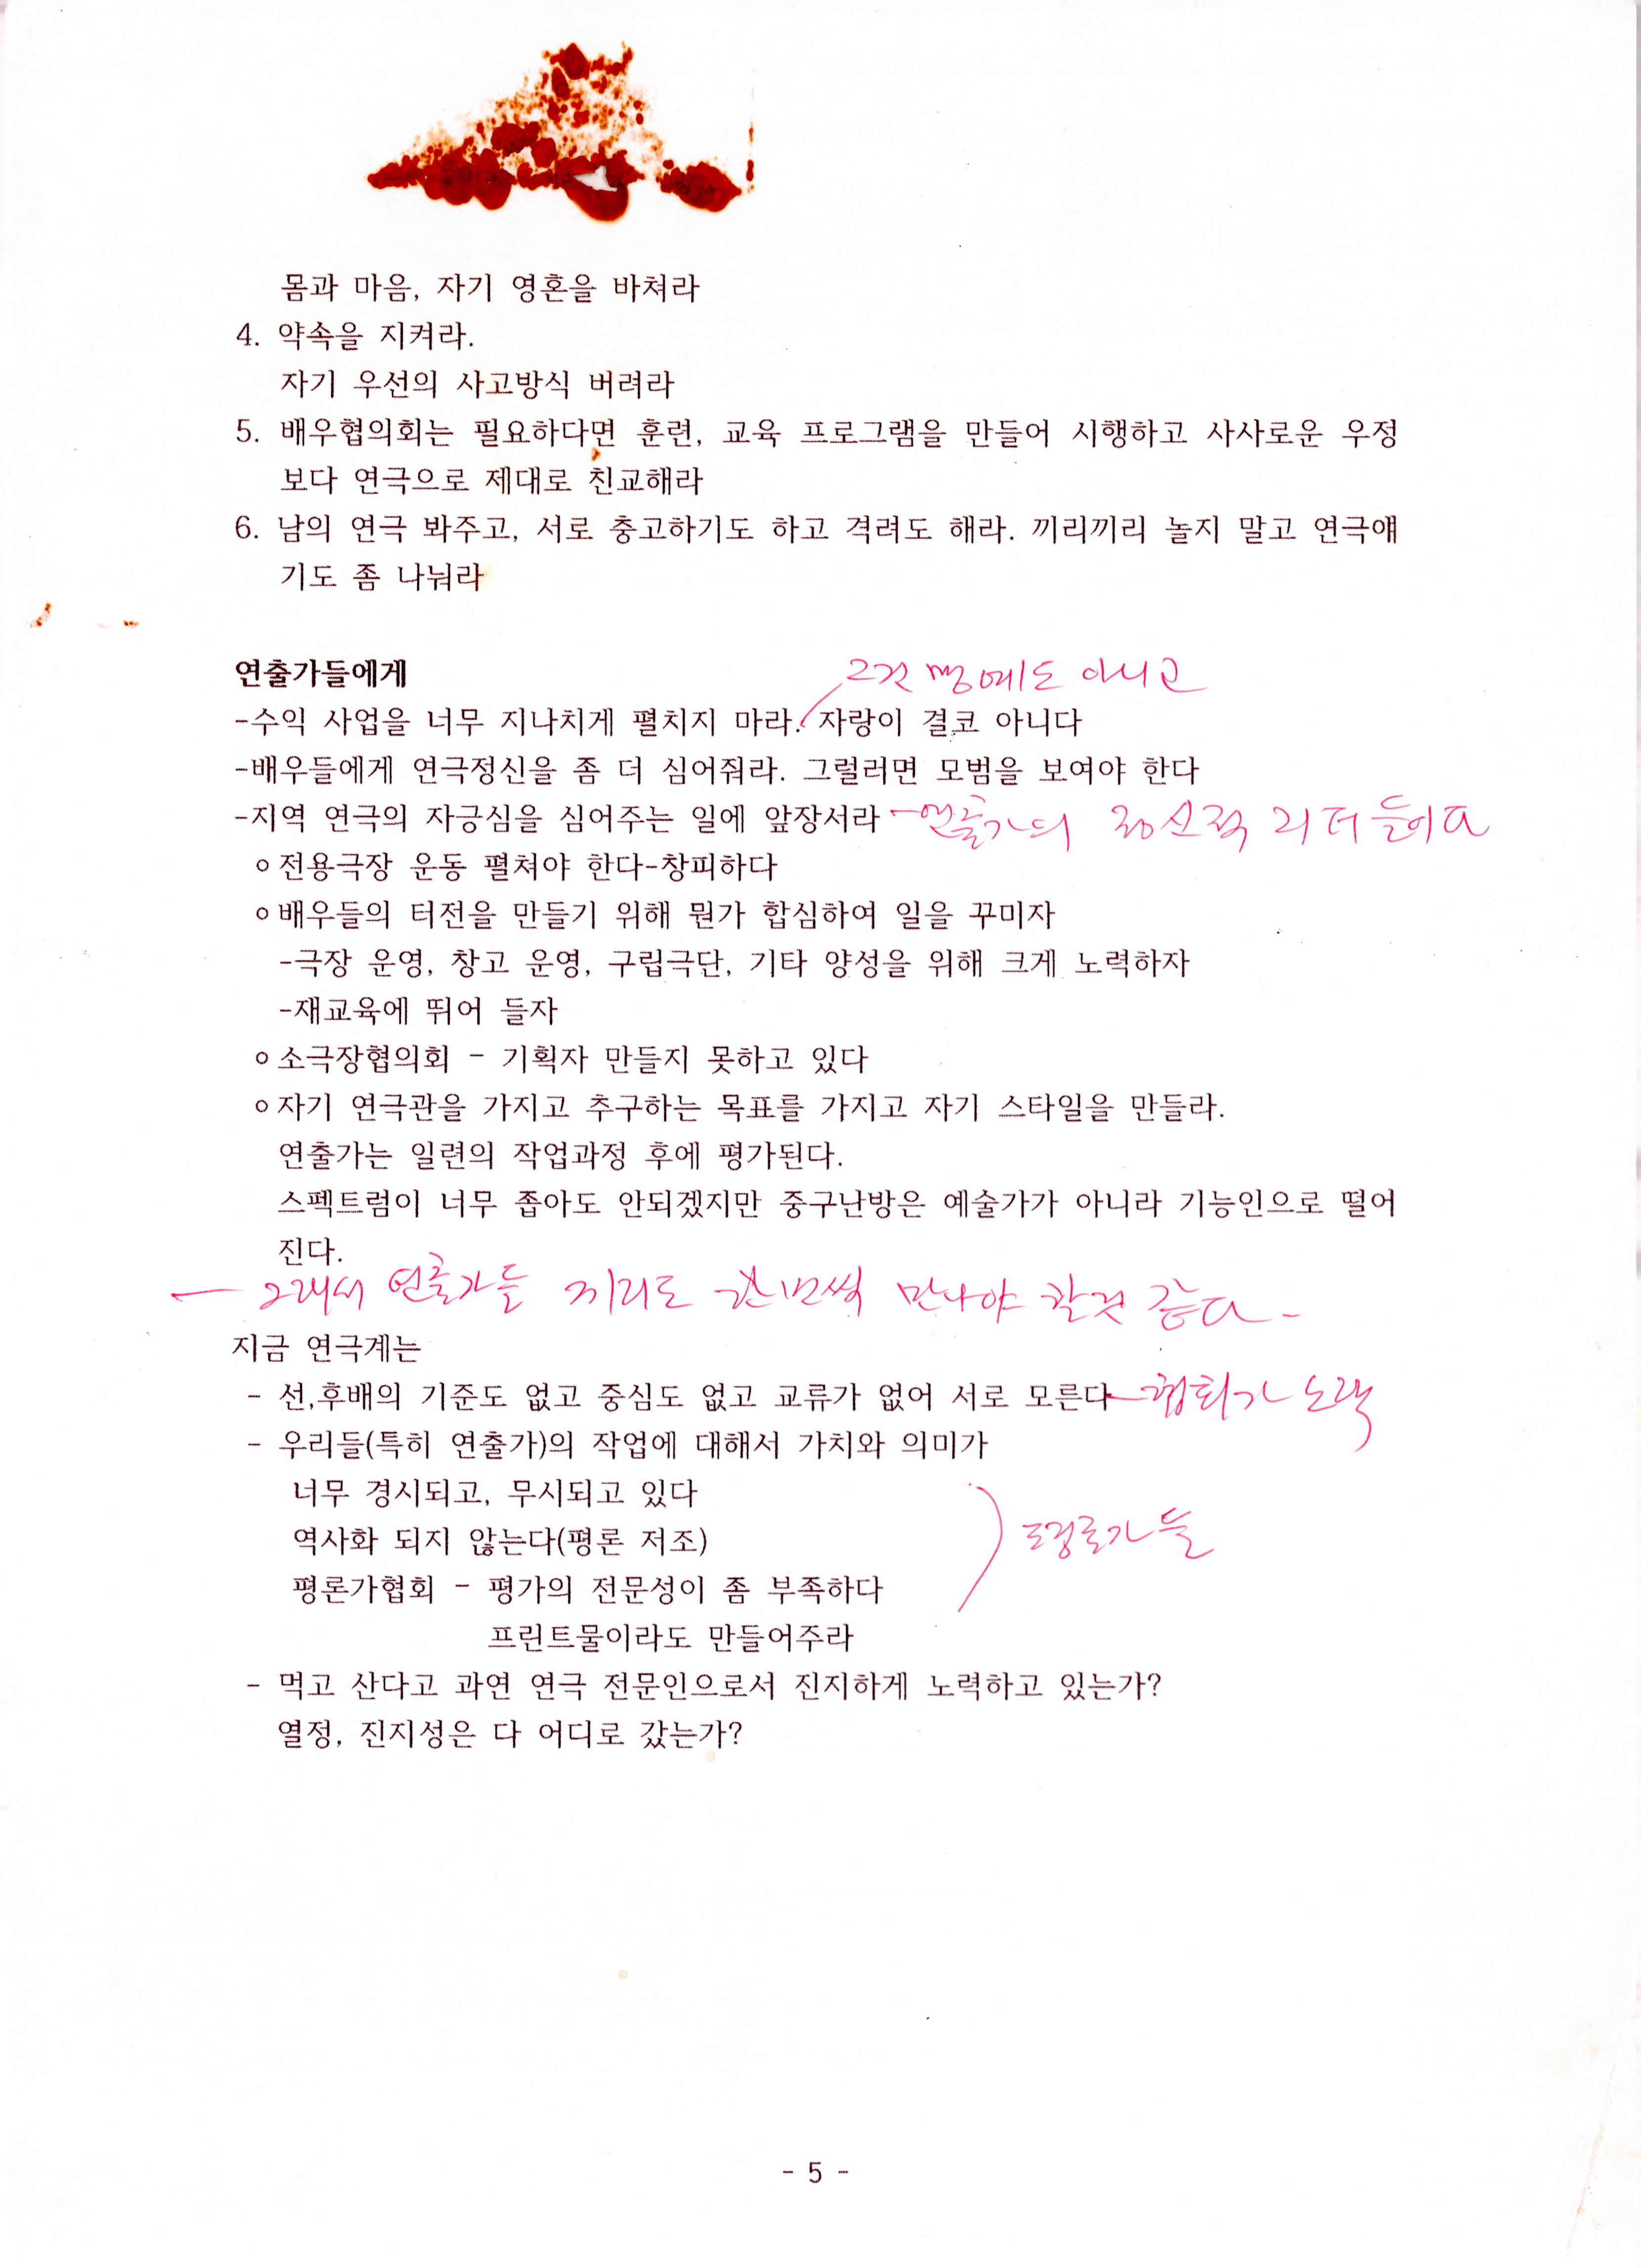 몸과 마음, 자기 영혼을 바쳐라
4. 약속을 지켜라.
자기 우선의 사고방식 버려라
5. 배우협의회는 필요하다면 훈련, 교육 프로그램을 만들어 시행하고 사사로운 우정
보다 연극으로 제대로 친교해라
6. 남의 연극 봐주고, 서로 충고하기도 하고 격려도 해라. 끼리끼리 놀지 말고 연극얘
기도 좀 나눠라
연출가들에게
그것 명예도 아니고
-수익 사업을 너무 지나치게 펼치지 마라. 자랑이 결코 아니다
-배우들에게 연극정신을 좀 더 심어줘라. 그럴러면 모범을 보여야 한다
-지역 연극의 자긍심을 심어주는 일에 앞장서라 - 정신적 리더들이다
∘전용극장 운동 펼쳐야 한다-창피하다
∘배우들의 터전을 만들기 위해 뭔가 합심하여 일을 꾸미자
-극장 운영, 창고 운영, 구립극단, 기타 양성을 위해 크게 노력하자
-재교육에 뛰어 들자
∘소극장협의회 - 기획자 만들지 못하고 있다
∘자기 연극관을 가지고 추구하는 목표를 가지고 자기 스타일을 만들라.
연출가는 일련의 작업과정 후에 평가된다.
스펙트럼이 너무 좁아도 안되겠지만 중구난방은 예술가가 아니라 기능인으로 떨어
진다.
- 그래서 연출가들 끼리도 한번씩 만나야 할것 같다 -
지금 연극계는
- 선,후배의 기준도 없고 중심도 없고 교류가 없어 서로 모른다 - 협회가 노력
- 우리들(특히 연출가)의 작업에 대해서 가치와 의미가
너무 경시되고, 무시되고 있다
역사화 되지 않는다(평론 저조)
평론가들
평론가협회 - 평가의 전문성이 좀 부족하다
프린트물이라도 만들어주라
- 먹고 산다고 과연 연극 전문인으로서 진지하게 노력하고 있는가?
열정, 진지성은 다 어디로 갔는가?
- 5 -